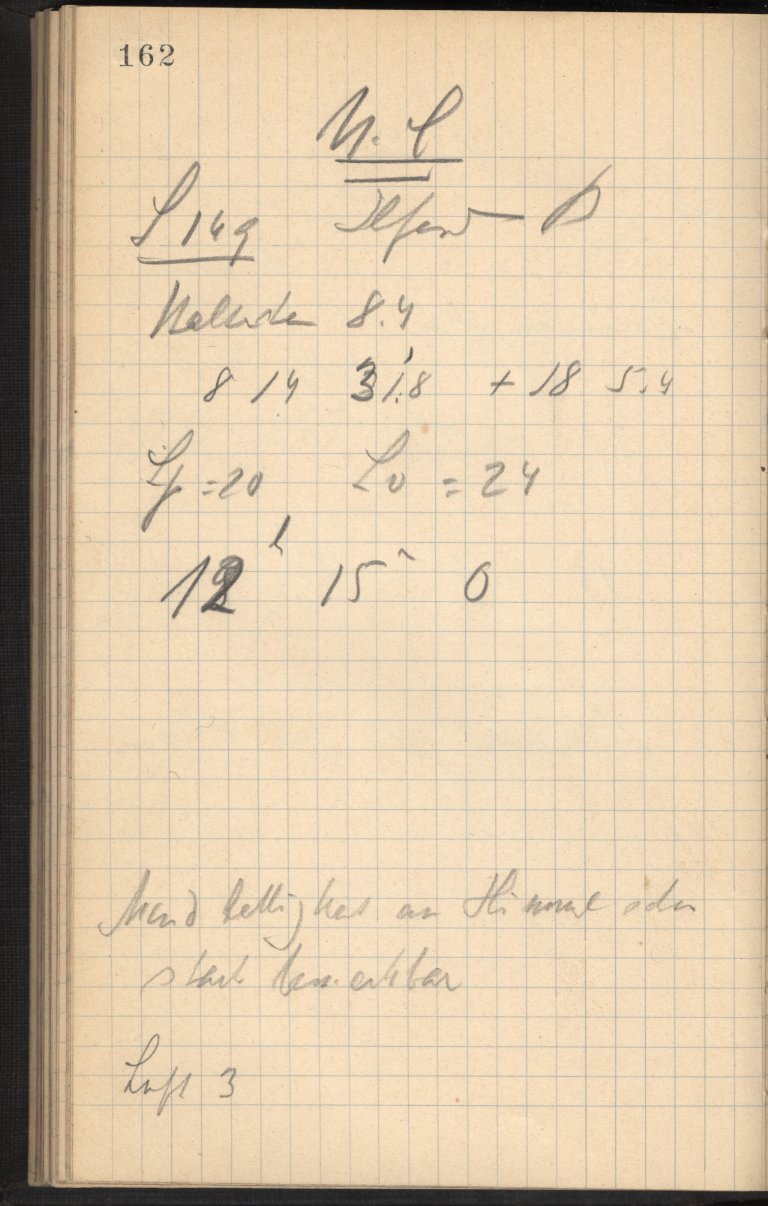 162
N. C
S 149 Ilford
8.4
8 14 31.8 + 18 5.4
Lf = 20 Lv = 24
12 h 15 m 0
Mond helligkeit am Himmel
stark bemerkbar
Luft 3